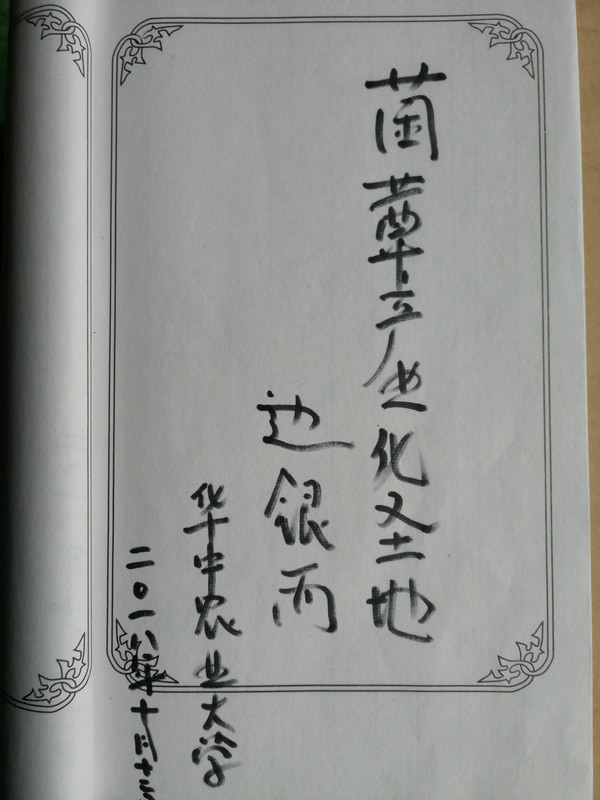 菌蕈产业化圣地
边银丙
华中农业大学
二〇一八年十月十